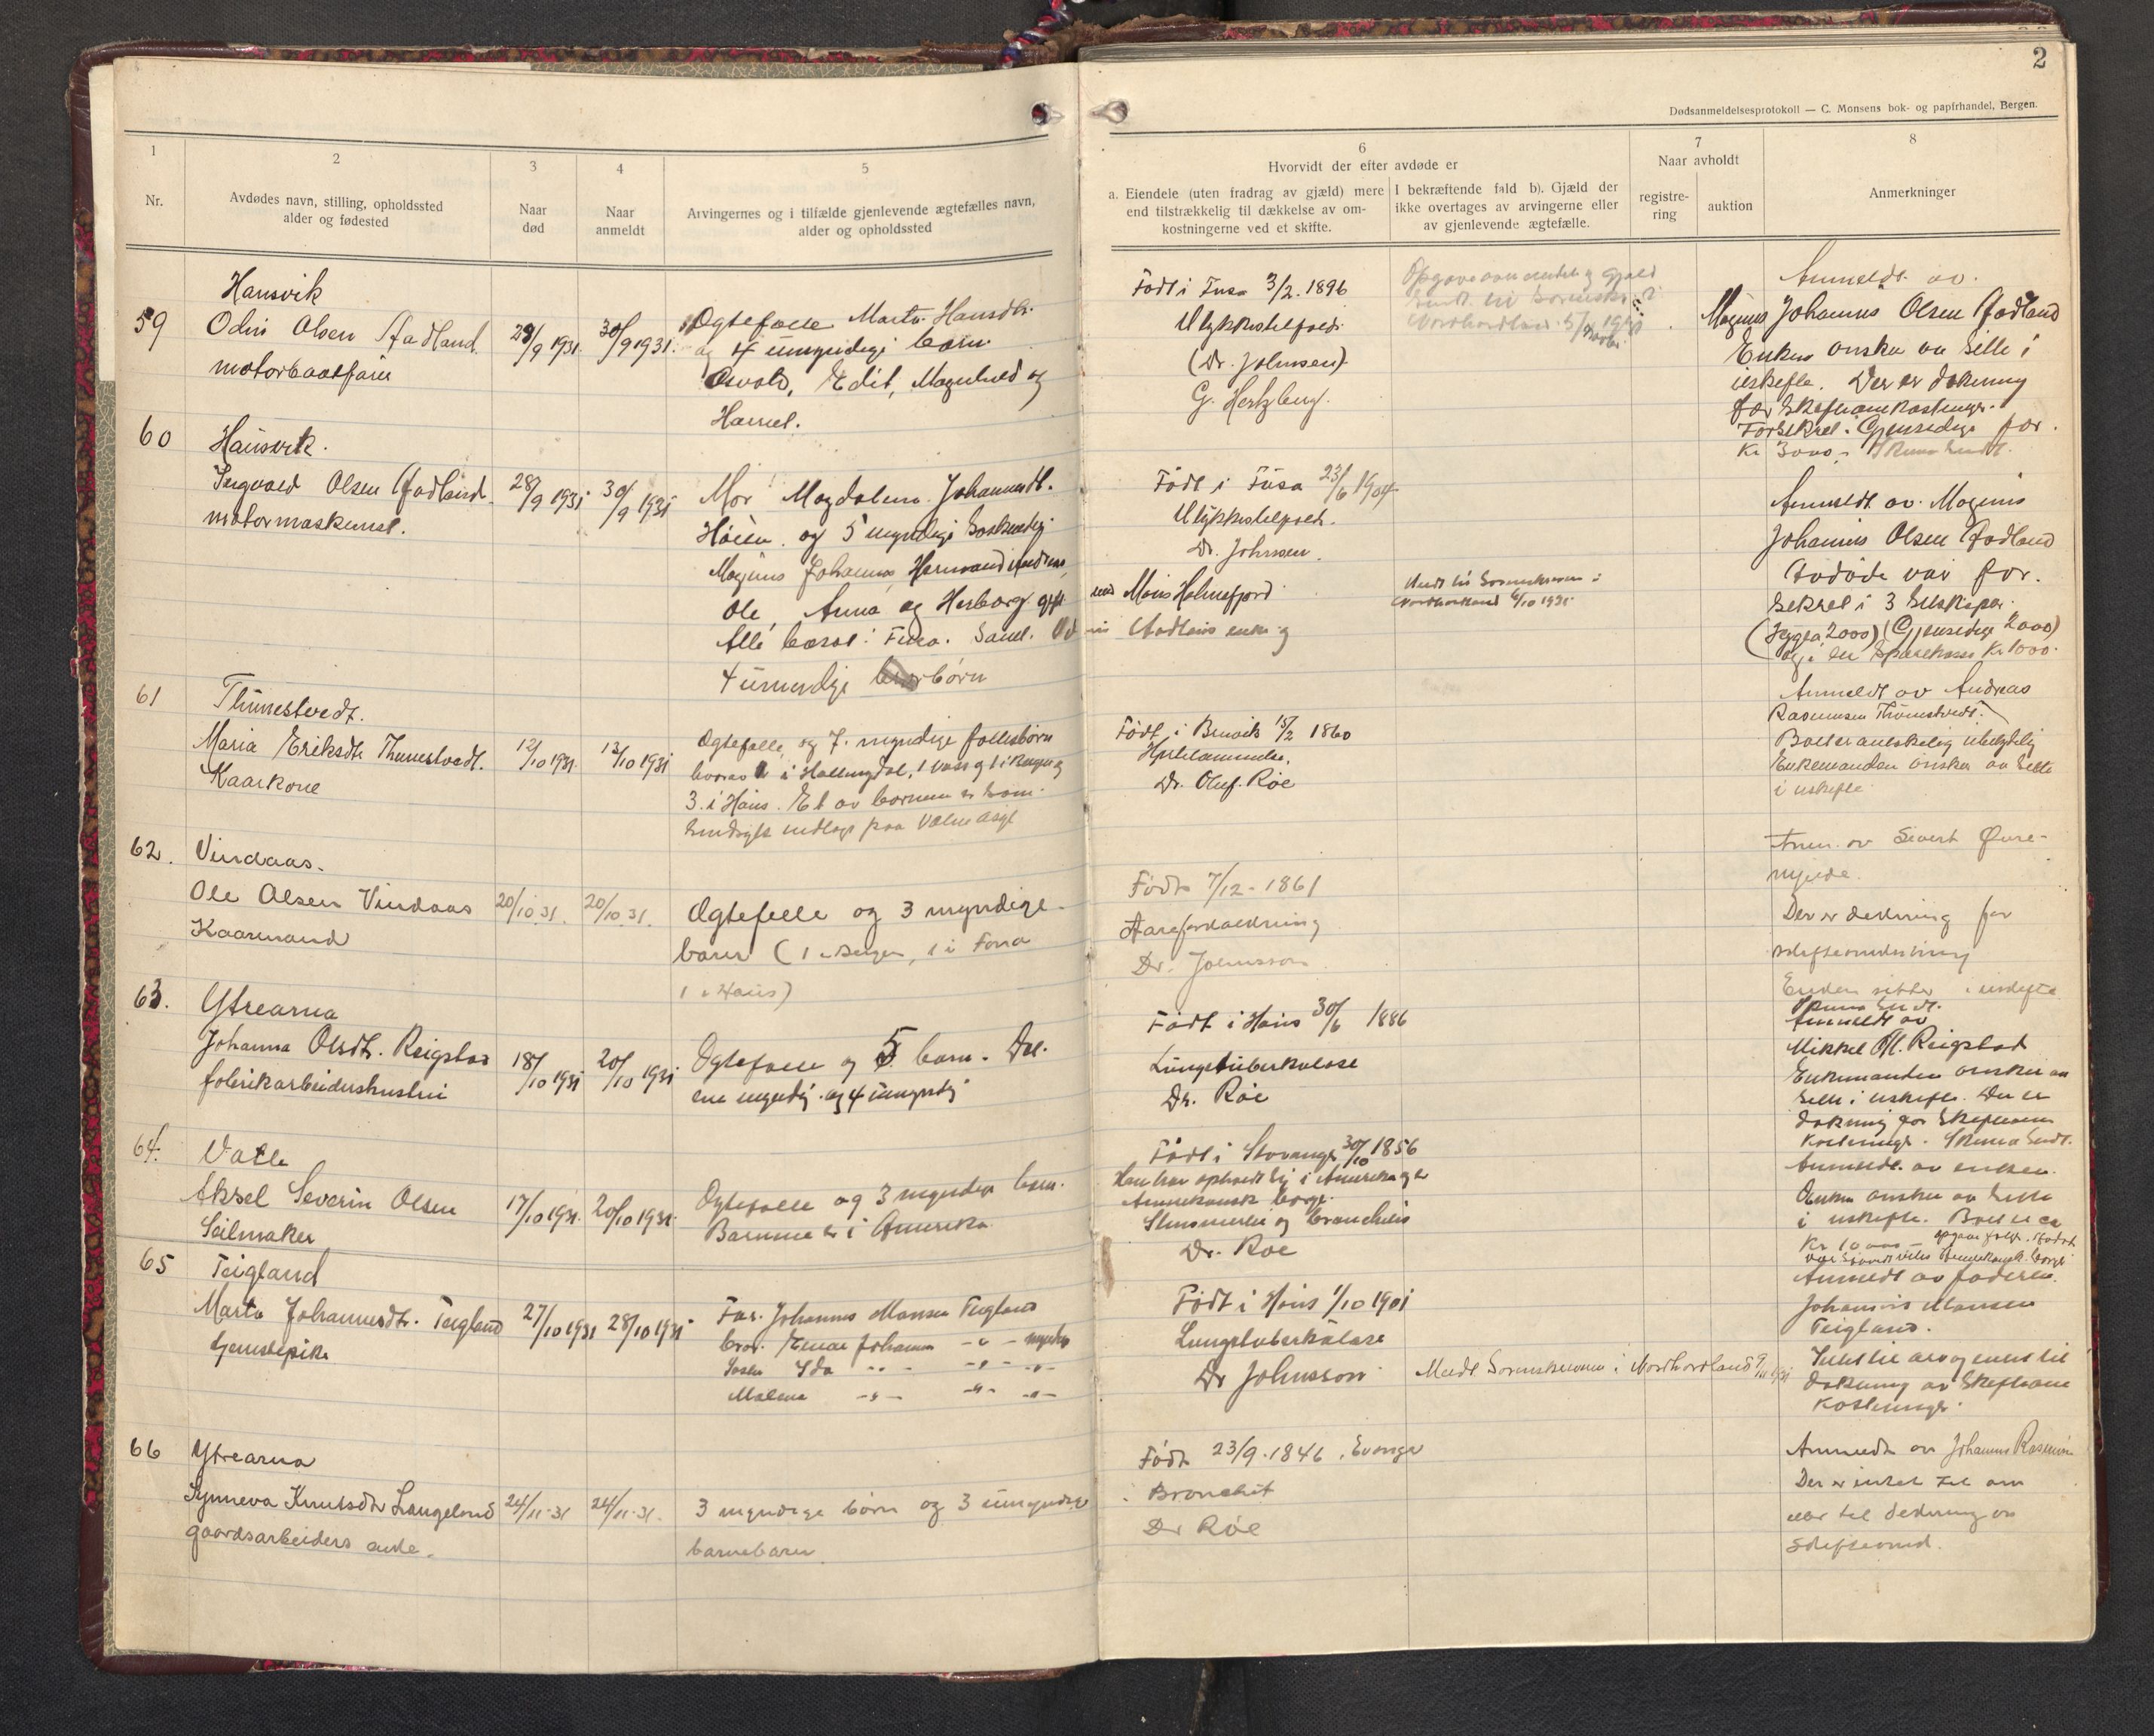 2
Dødsanmeldelsesprotokoll — C. Monsens bok- og papirhandel, Bergen.
1
2
3
4
5
Nr.
Avdødes navn, stilling, opholdssted
alder og fødested
Naar
død
Naar
anmeldt
Arvingernes og i tilfælde gjenlevende ægtefælles navn,
alder og opholdssted
6
Hvorvidt der efter avdøde er
a. Eiendele (uten fradrag av gjæld) mere
end tilstrækkelig til dækkelse av om-
kostningerne ved et skifte.
I bekræftende fald b). Gjæld der
ikke overtages av arvingerne eller
av gjenlevende ægtefælle.
7
Naar avholdt
registre-
ring
auktion
8
Anmerkninger
59
Hausvik
Odin Olsen Aadland
motorbaatfører
29/9 1931.
30/9 1931.
Ogtefælle Marta Hansdtr.
og 4 umyndige børn
Osvald, Edit, Magnhild og
Født i Fusa 3/2. 1896
Ulykkestilfælde
(Dr. Johnsen)
G. Hertzberg.
Anmeldt av
Magnus Johannes Olsen Aadland
Enken ønsker at sitte i
uskifte. Der er dekning
for skifteomkostninger.
kr 3000.
60
Hausvik.
Ingvald Olsen Aadland
motormaskinist.
28/9 1931
30/9 1931
Mor Magdalena Johannesdtr.
og 5 myndige søskende
Magnus Johannes,
Ole, Anna og Herborg gift
med Mons Holmefjord
Alle bosat i Fusa. Saml.
Aadlands enke og
4 umyndige børn
Født i Fusa 23/6 1904
Ulykkestilfælde.
Dr. Johnsen.
Meldt til Sorenskriveren i
Nordhordland 6/10 1931
Anmeldt av Magnus
Johannes Olsen Aadland
Avdøde var for-
sikret i 3 selskaper.
(Hygea 2000) (Gjensidige 2000)
og i en Sparekasse kr. 1000.
61
Thunestvedt.
Maria Eriksdtr Thunestvedt.
Kaarkone
12/10 1931.
13/10 1931
Ogtefælle og 7 myndige fællesbørn
hvorav 1 i Hallingdal, 1 Voss og 1 i Bergen og
3 i Haus. Et av børnene er som
sindsyk indlagt paa Valen asyl
Født i Bruvik 15/2 1860
Hjertelammelse.
Dr. Oluf Røe
Anmeldt av Andreas
Rasmussen Thunestvedt.
Boet er anskelig ubetydelig
Enkemanden ønsker at sitte
i uskifte
62.
Vindaas.
Ole Olsen Vindaas
Kaarmand
20/10.31.
20/10.31.
Ogtefelle og 3 myndige
barn (1 i Bergen, 1 i Fona
1 i Haus)
Født 7/12 - 1861
Aareforkalkning
Dr. Johnsson
Anm. av Sivert Øvre-
Der er dekning for
Enken sitter i uskifte
63.
Ytrearna
Johanna Olsdtr. Reigstad
fabrikarbeidershustru
18/10 1931
20/10 1931
Ogtefælle og 5 barn. Det
ene myndig og 4 umyndig
Født i Haus 30/6 1886
Lungetuberkulose
Dr. Røe
Skema sendt.
Anmeldt av
Mikkel M. Reigstad
Enkemanden ønsker at
sitte i uskifte. Der er
dekning for skifteom-
kostninger. Skema sendt.
64.
Valle
Aksel Severin Olsen
Seilmaker
17/10 1931.
20/10 1931.
Ogtefælle og 3 myndige barn.
Barnene er i Amerika
Født i Stavanger 30/10 1856
Han har opholdt sig i Amerika og er
Amerikansk borger.
og bronchitis
Dr. Røe
Anmeldt av enken.
Enken ønsker at sitte
i uskifte. Boet er ca
Kr 10 000
65
Teigland
Marta Johannesdtr. Teigland
tjenestepike
27/10 1931
28/10 1931
Far. Johannes Monsen Teigland
bror. Einar Johannes — " — myndig
Søster Ida — " — — " — — " —
Malena — " — — " — — " —
Født i Haus 1/10 1901
Lungetuberkulose
Dr Johnsson
Meldt Sorenskriveren i Nordhordland
Anmeldt av faderen
Johannes Monsen
Teigland.
Intet til arv og intet til
dekning av skifteom-
kostninger.
66
Ytrearna
Synneva Knutsdtr Langeland
gaardsarbeiders enke.
24/11-31
24/11-31.
3 myndige børn og 3 umyndige
barnebarn
Født 23/9.1846 i Evanger
Bronchit
Dr Røe
Anmeldt av Johannes Rasmus
Der er intet til arv
eller til dekning av
skifteomk.